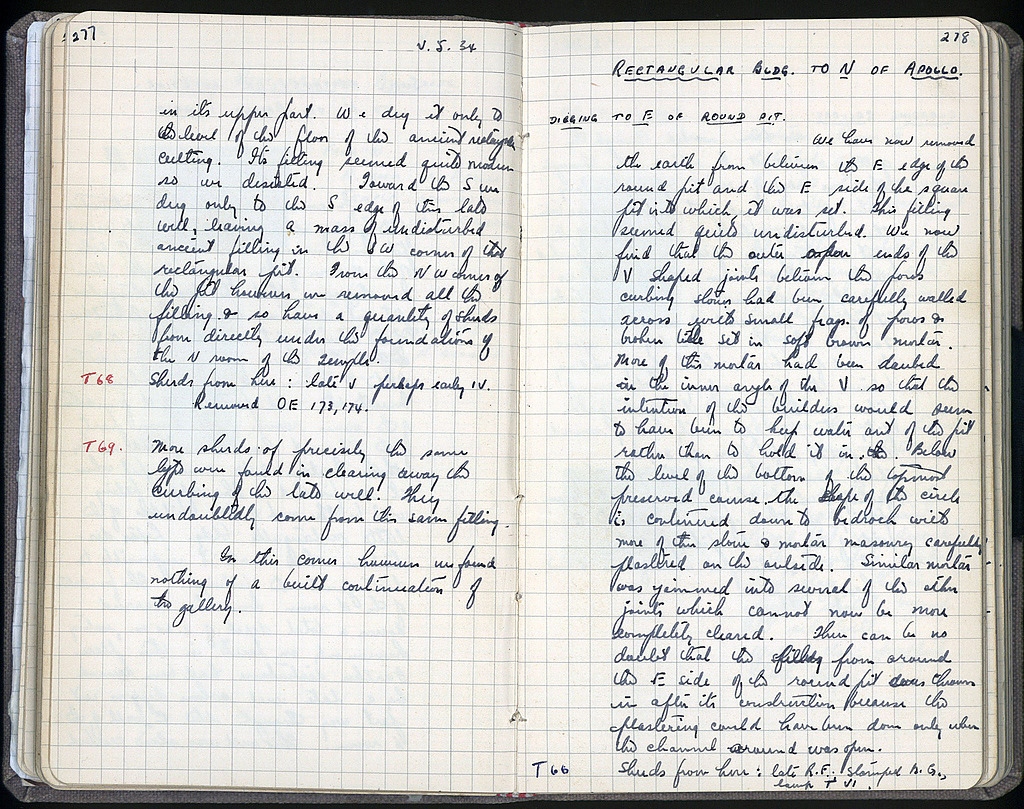 277
V. 5. 34
in its upper part. We dug it only to
the level of the floor of the ancient rectangular
cutting. Its filling seemed quite modern
so we desisted. Toward the S we
dug only to the S edge of this late
well, leaving a mass of undisturbed
ancient filling in the SW corner of the
rectangular pit. From the NW corner of
the pit however we removed all the
filling & so have a quantity of sherds
from directly under the foundations of
the N room of the temple.
T 68 Sherds from here: late V perhaps early IV.
Removed OE 173, 174.
T 69. More sherds of precisely the same
type were found in clearing away the
curbing of the late well. They
undoubtedly come from this same filling.
In this corner however we found
nothing of a built continuation of
the gallery.
278
RECTANGULAR BLDG. TO N OF APOLLO.
DIGGING TO E OF ROUND PIT.
We have now removed
the earth from between the E edge of the
round pit and the E side of the square
pit into which it was set. This filling
seemed quite undisturbed. We now
find that the outer ends of the
V shaped joints between the poros
curbing stones had been carefully walled
across with small frags. of poros &
broken tile set in soft brown mortar.
More of this mortar had been daubed
in the inner angle of the V so that the
intention of the builders would seem
to have been to keep water out of the pit
rather than to hold it in. Below
the level of the bottom of the topmost
preserved course the shape of the circle
is continued down to bedrock with
more of this stone & mortar masonry carefully
plastered on the outside. Similar mortar
was jammed into several of the other
joints which cannot now be more
completely cleared. There can be no
doubt that the filling from around
the E side of the round pit was thrown
in after its construction because the
plastering could have been done only when
the channel around was open.
T 66 Sherds from here: late R.F., stamped B.G.,
lamp T VI.